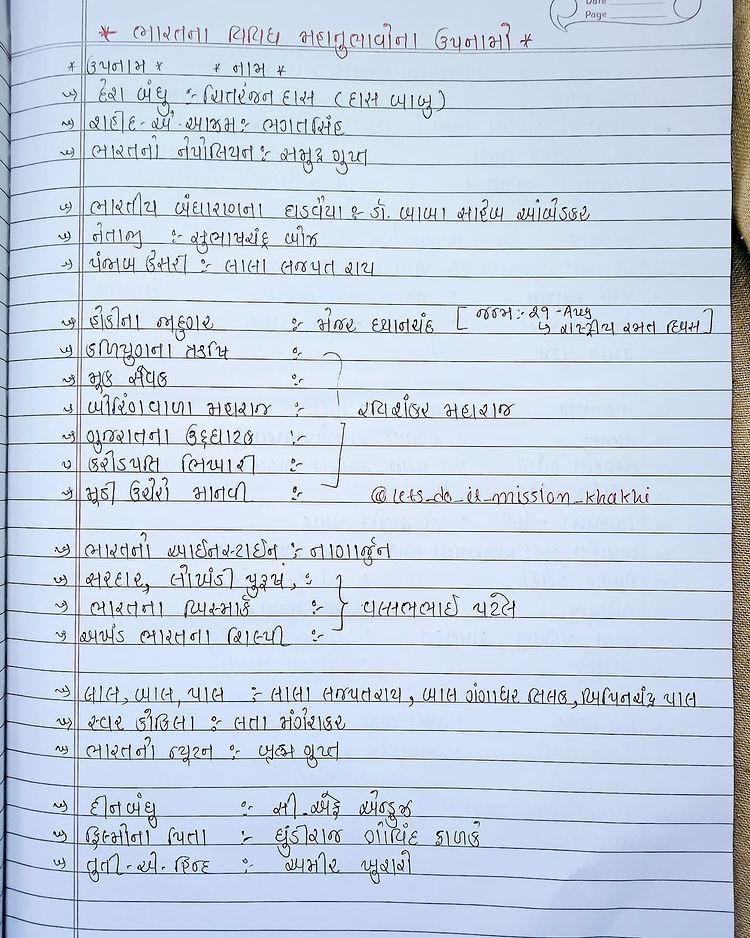 Date
Page
* ભારતના વિવિધ મહાનુભાવોના ઉપનામો *
* ઉપનામ * * નામ *
→ દેશ બંધુ :- ચિતરંજન દાસ (દાસ બાબુ)
→ શહીદ-એ-આઝમ :- ભગતસિંહ
→ ભારતનો નેપોલિયન :- સમુદ્ર ગુપ્ત
→ ભારતીય બંધારણના ઘડવૈયા :- ડૉ. બાબા સાહેબ આંબેડકર
→ નેતાજી :- સુભાષચંદ્ર બોઝ
→ પંજાબ કેસરી :- લાલા લજપત રાય
→ હોકીના જાદુગર :- મેજર ધ્યાનચંદ [ જન્મ :- 29 -Aug
↳ રાષ્ટ્રીય રમત દિવસ ]
→ કળિયુગના ઋષિ :-
→ મૂક સેવક :-
→ બોરિંગવાળા મહારાજ :- રવિશંકર મહારાજ
→ ગુજરાતના ઉદઘાટક :-
→ કરોડપતિ ભિખારી :-
→ મૂઠી ઉંચેરો માનવી :- @lets_do_it_mission_khakhi
→ ભારતનો આઈનસ્ટાઈન :- નાગાર્જુન
→ સરદાર, લોખંડી પુરૂષ, :-
→ ભારતના બિસ્માર્ક :- } વલ્લભભાઈ પટેલ
→ અખંડ ભારતના શિલ્પી :-
→ લાલ, બાલ, પાલ :- લાલા લજપતરાય, બાલ ગંગાધર તિલક, બિપિનચંદ્ર પાલ
→ સ્વર કોકિલા :- લતા મંગેશકર
→ ભારતનો ન્યૂટન :- બ્રહ્મ ગુપ્ત
→ દીનબંધુ :- સી.એફ એન્ડ્રુઝ
→ ફિલ્મોના પિતા :- ધુંડીરાજ ગોવિંદ ફાળકે
→ તુતી-એ-હિન્દ :- અમીર ખુશરો